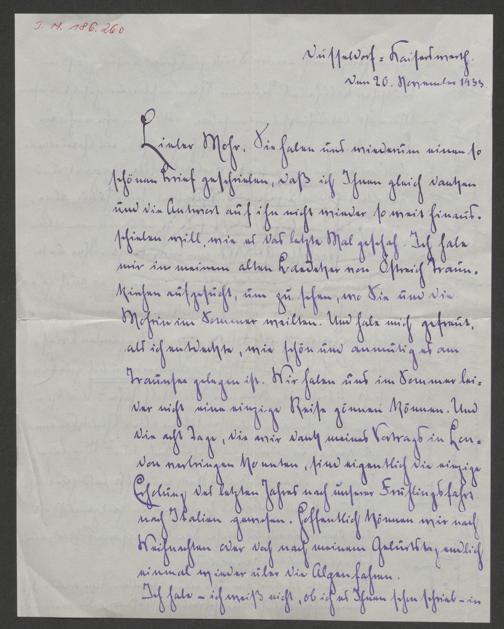 I. N. 186.260
Düsseldorf-Kaiserswerth.
den 20. November 1933
Lieber Mohr, Sie haben uns wiederum einen so
schönen Brief geschrieben, daß ich Ihnen gleich danken
und die Antwort auf ihn nicht wieder so weit hinaus-
schieben will, wie es das letzte Mal geschah. Ich habe
mir in meinem alten Baedeker von Östreich Traun-
kirchen aufgesucht, um zu sehen, wo Sie und die
Mohrin im Sommer weilten. Und habe mich gefreut,
als ich entdeckte, wie schön und anmutig es am
Traunsee gelegen ist. Wir haben uns im Sommer lei-
der nicht eine einzige Reise gönnen können. Und
die acht Tage, die wir dank meines Vortrags in Lon-
don verbringen konnten, sind eigentlich die einzige
Erholung des letzten Jahres nach unserer Frühlingsfahrt
nach Italien gewesen. Hoffentlich können wir nach
Weihnachten oder doch nach meinem Geburtstag endlich
einmal wieder über die Alpen fahren.
Ich habe – ich weiß nicht, ob ich es Ihnen schon schrieb – in